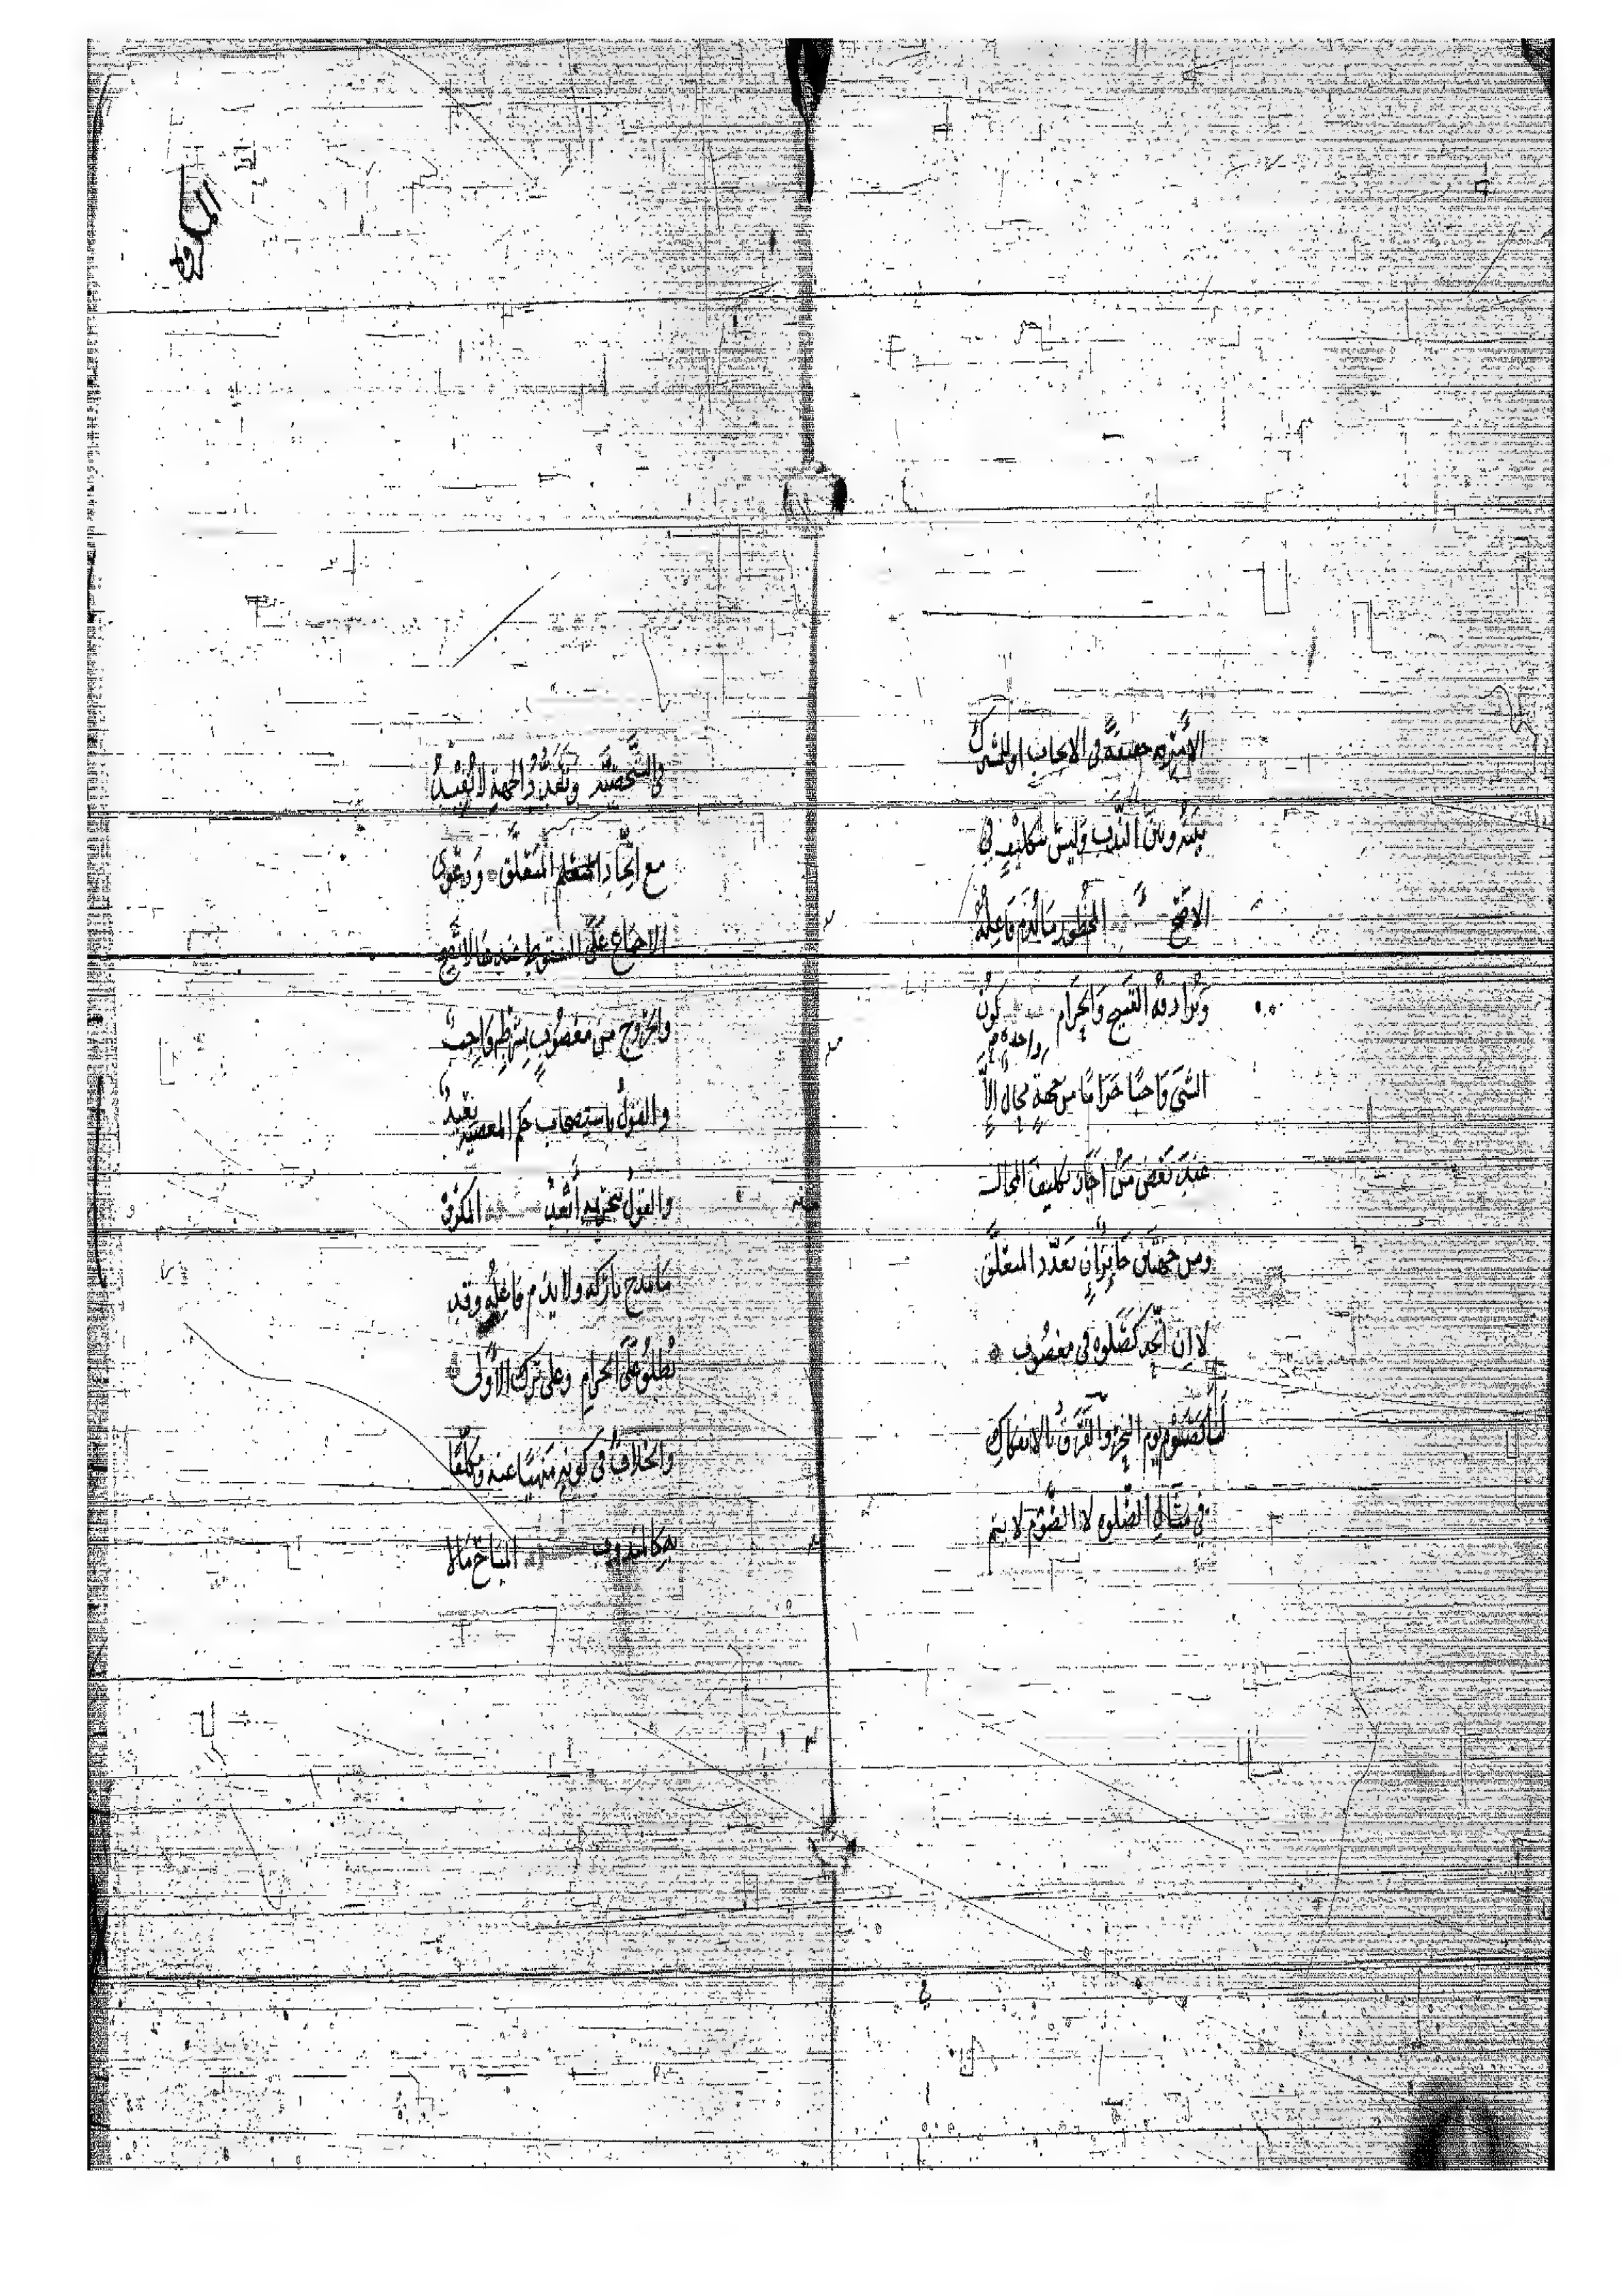 الأمر به حقيقة في الايجاب او المشترك
بينه وبين الندب وليس بتكليف في
الاصح المحظور ما يذم فاعله
ويرادفه القبيح والحرام كون
الشي واجبًا حرامًا من جهةٍ واحدةٍ محال الّا
عند بعض من اجاز تكليف المحال
ومن جهتين جايز ان تعدد المتعلق
لا ان اتحد كصلوه في مغصوب
لنا كصوم يوم النحر والفرق بالانفكاك
في مثال الصلوه لا الصوم لا يتم
والشخصية وتعدد الجهة لا يفيد
مع اتحاد المتعلق ودعوى
الاجماع على السقوط عندها لا تصح
والخروج من مغصوبٍ بشرطه واجب
والقول باستصحاب حكم المعصية بعيد
والقول بتحريمه أبعد المكروه
ما يمدح تاركه ولا يذم فاعله وقد
يطلق على الحرام وعلى ترك الأولى
والخلاف في كونه منهيًا عنه ومكلفًا
به كالمندوب المباح ما لا
المكروه